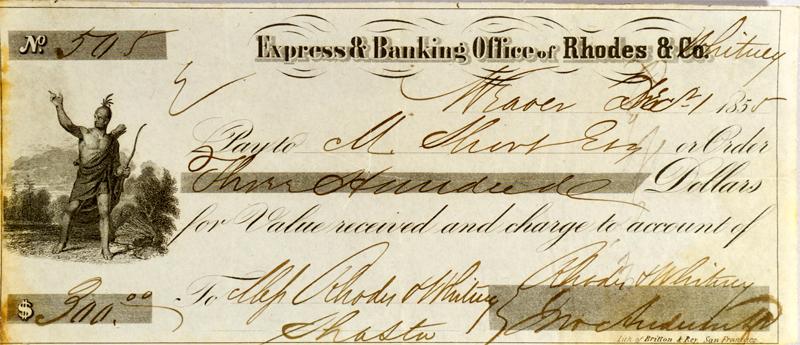 No. 505
Express & Banking Office of Rhodes & Co. Whitney
Weaver Dec. 1 1855
Pay to M. Short Esq or Order
Three Hundred Dollars
for Value received and charge to account of
$300.00 To Mess Rhodes & Whitney Rhodes & Whitney
Shasta Jno Anderson
Lith. of Britton & Rey. San Francisco